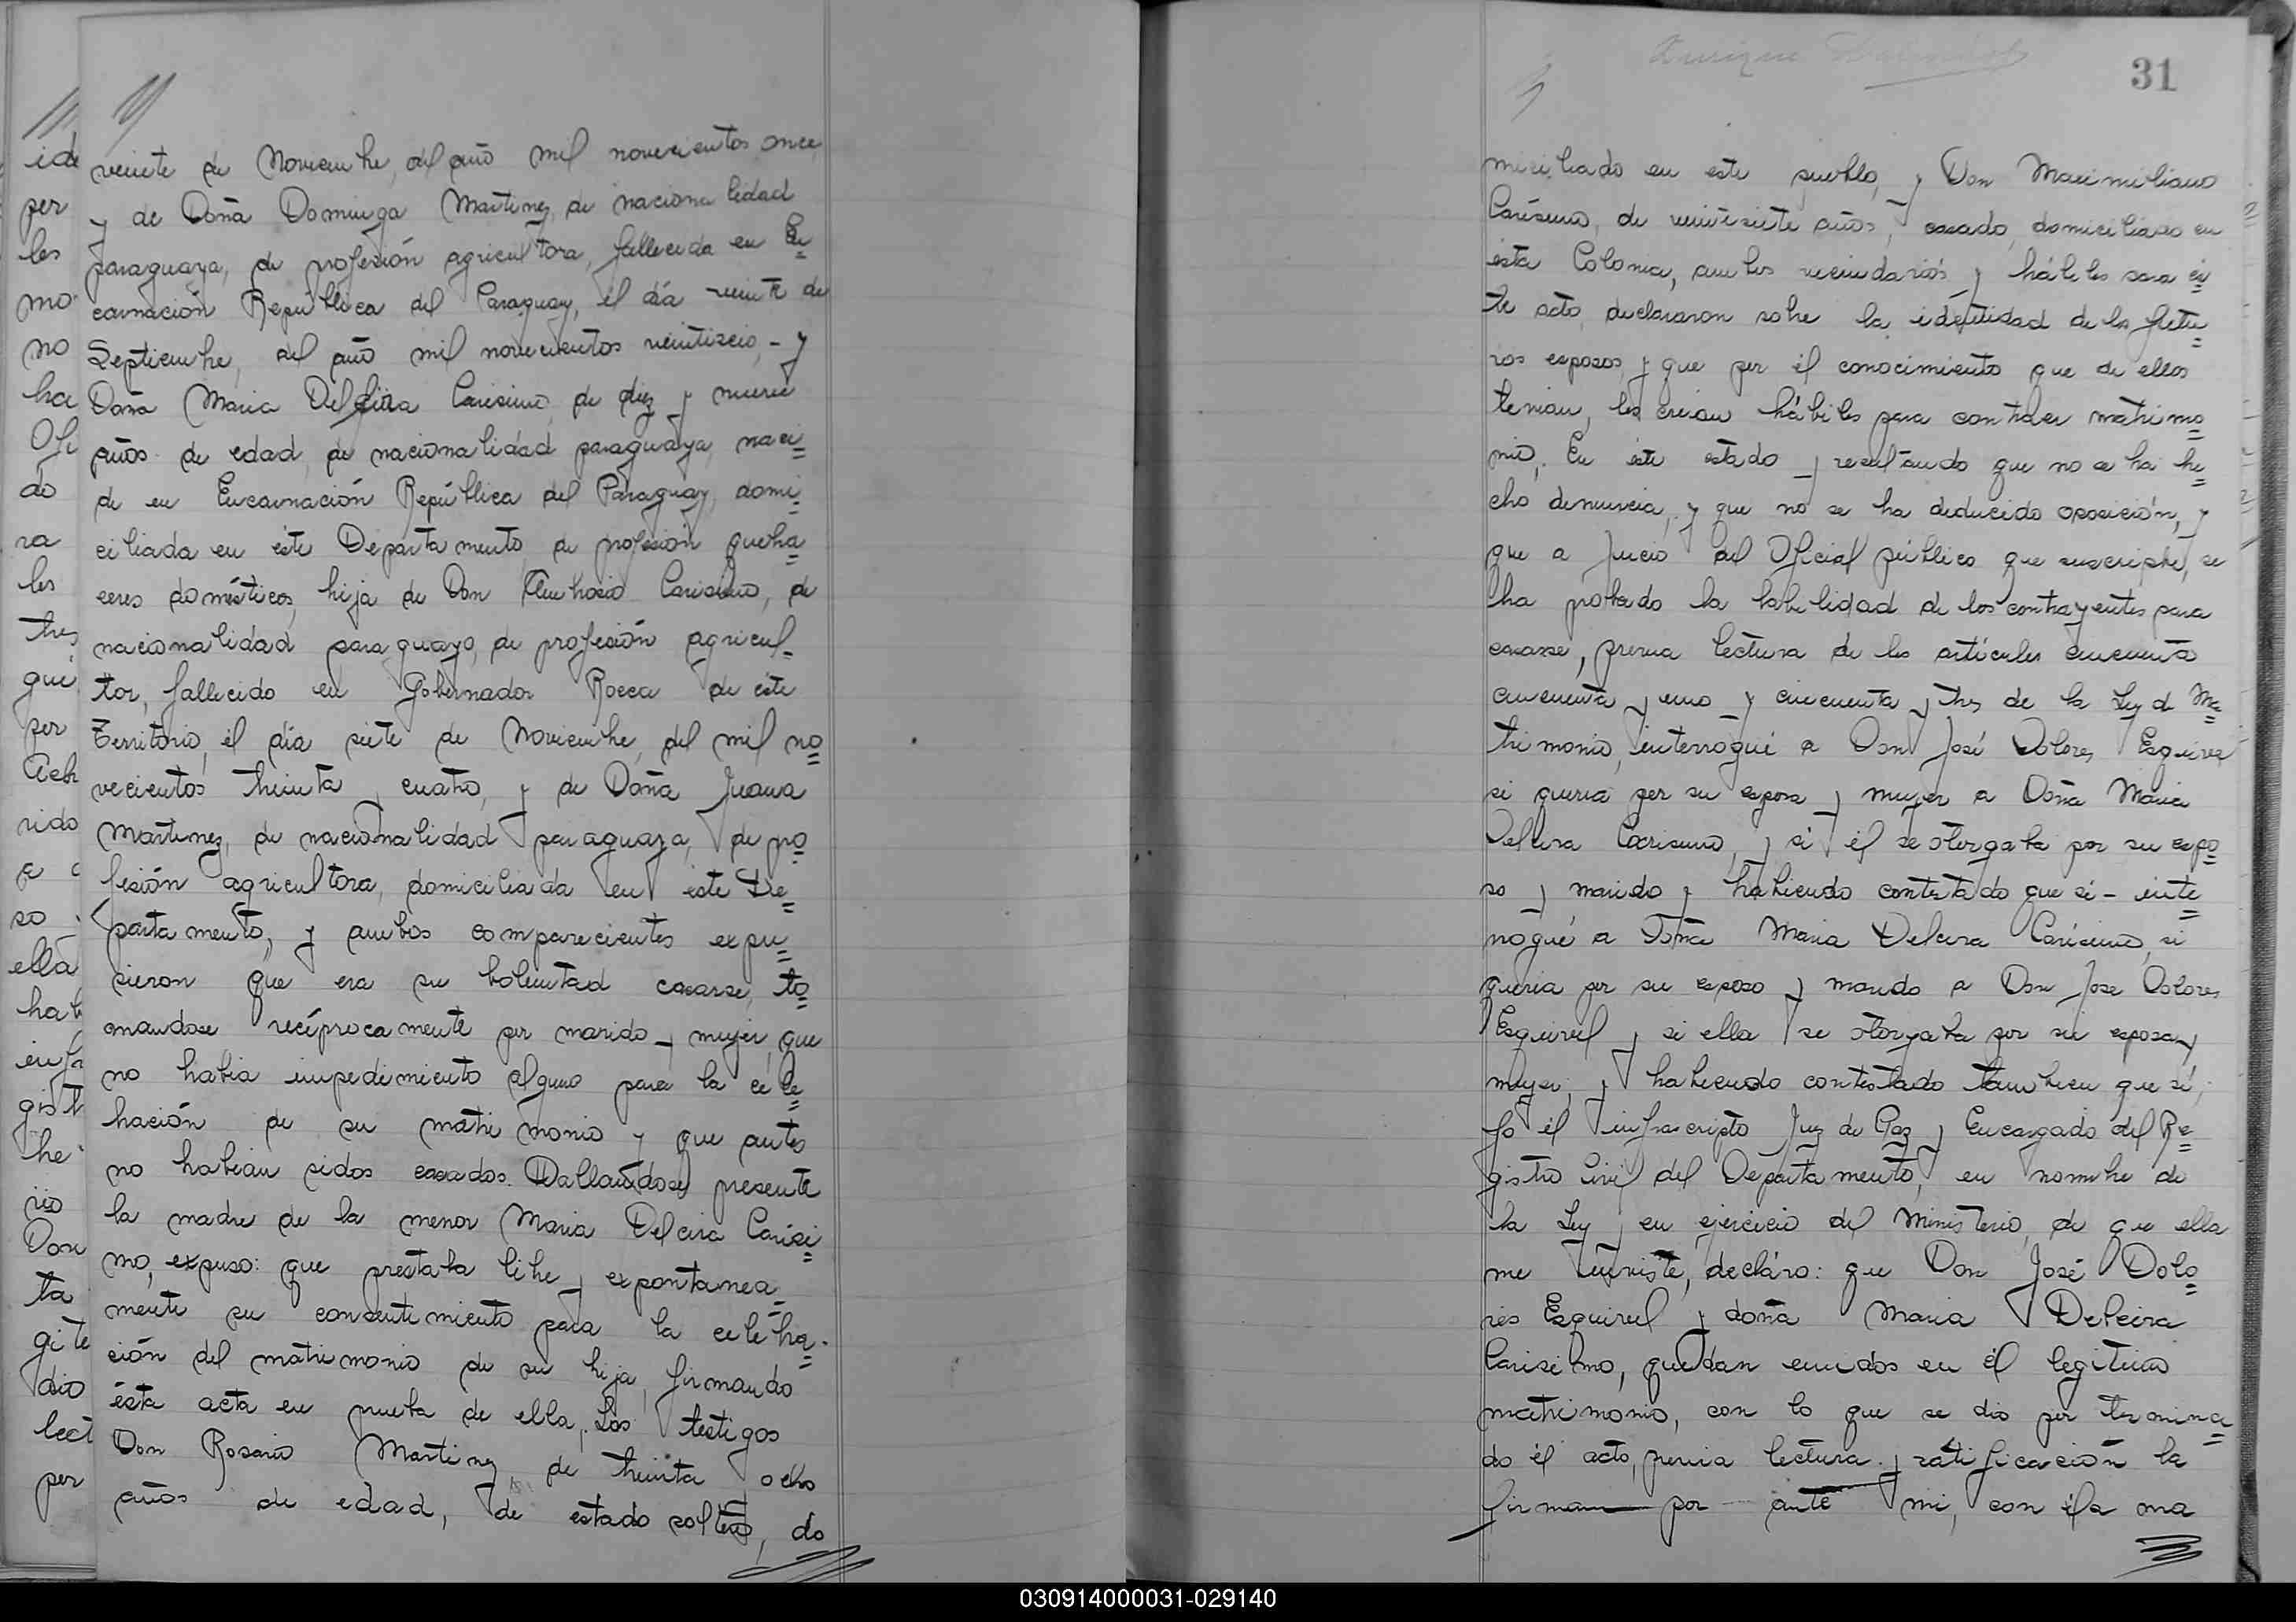 veinte de Noviembre, del año mil novecientos once
y de Doña Dominga Martinez, de nacionalidad
paraguaya, de profesión agricultora, fallecida en En=
carnación República del Paraguay, él día veinte de
Septiembre, del año mil novecientos veintiseis, - y
Doña Maria Delcira Carisimo, de diez y nueve
años de edad, de nacionalidad paraguaya, naci=
da en Encarnación República del Paraguay, domi=
ciliada en éste Departamento, de profesión queha=
ceres domésticos, hija de Don Carisimo, de
nacionalidad paraguayo, de profesión agricul=
tor, fallecido en Gobernador Rocca de éste
Territorio, él día siete de Noviembre, del mil no=
vecientos treinta y cuatro, y de Doña Juana
Martinez, de nacionalidad paraguaya, de pro=
fesión agricultora, domiciliada en éste De=
partamento, y ambos comparecientes expu=
sieron que era su boluntad casarse, to=
mandose recíprocamente por marido y mujer, que
no habia impedimiento alguno para la cele=
bración de su matrimonio y que antes
no habian sidos casados. Hallandose presente
la madre de la menor Maria Delcira Carisi=
mo, expuso: que prestaba libre y expontanea=
mente su consentimiento para la celebra=
ción del matrimonio de su hija, firmando
ésta acta en prueba de ella. Los testigos
Don Rosario Martinez, de treinta y ocho
años de edad, de estado soltero, do
31
miciliado en este pueblo, y Don Maximiliano
Carisimo, de veintisiete años, casado, domiciliado en
ésta Colonia, ambos vecindarios y hábiles para és=
te acto, declararon sobre la idéntidad de los futu=
ros esposos, y que por él conocimiento que de ellos
tenian, les creian hábiles para contraer matrimo=
nio. En éste estado y resultando que no se ha he=
cho denuncia, y que no se ha deducido oposición, y
que a juicio del Oficial público que suscripbe, se
ha probado la habilidad de los contrayentes para
casarse, previa lectura de los artículos cincuenta
cincuenta y uno y cincuenta y tres de la Ley d Ma=
trimonio, interrogué a Don José Dolores Esquivel
si queria por su esposa y mujer a Doña Maria
Delcira Carisimo, y si él se otorgaba por su espo=
so y marido y habiendo contestado que si - inte=
rrogué a Doña Maria Delcira Carisimo, si
queria por su esposo y marido a Don Jose Dolores
Esquivel y si ella se otorgaba por su esposa y
mujer, y habiendo contestado tambien que sí,
Yo él infrascripto Juez de Paz y Encargado del Re=
gistro Civil del Departamento, en nombre de
la Ley y en ejercicio del Ministerio, de que ella
me inviste, decláro: que Don José Dolo=
res Esquivel y doña Maria Delcira
Carisimo, quedan unidos en él legitimo
matrimonio, con lo que se dió por termina=
do él acto, previa lectura y ratificación la
firman por ante mi, con él a ma
030914000031-029140